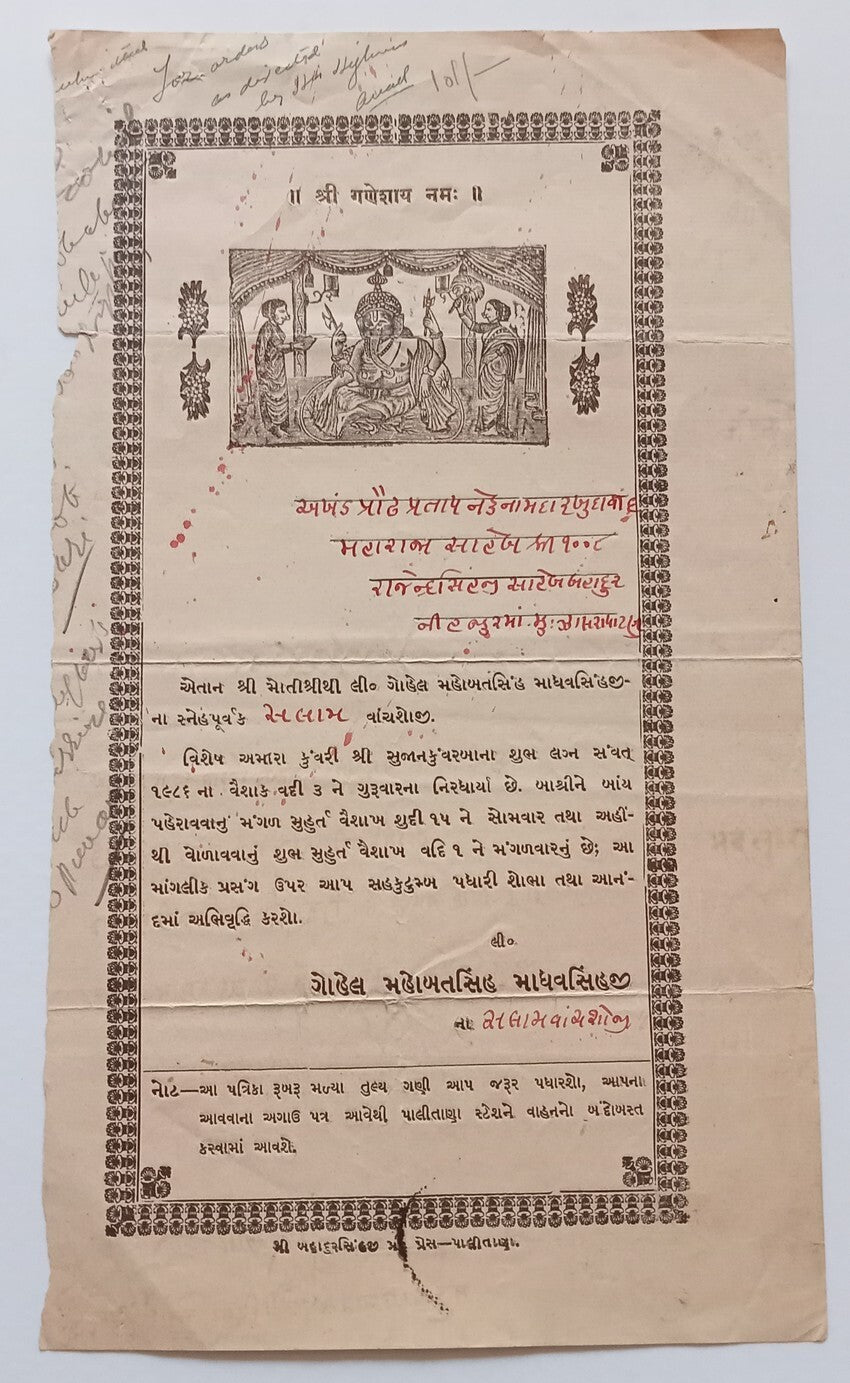 For orders
as directed
by His Highness
॥ श्री गणेशाय नमः ॥
અખંડ પ્રૌઢ પ્રતાપ નેક નામદાર ખુદાવીંદ
મહારાજા સાહેબ શ્રી ૧૦૦૮
રાજેન્દ્રસિંહજી સાહેબ બહાદુર
ની હજુરમાં મુ: ઝાલરાપાટણ
એતાન શ્રી મોતીશ્રીથી લી૦ ગોહેલ મહોબતસિંહ માધવસિંહજી-
ના સ્નેહપૂર્વક સલામ વાંચશોજી.
વિશેષ અમારા કુંવરી શ્રી સુજાનકુંવરબાના શુભ લગ્ન સંવત્
૧૯૮૬ ના વૈશાક વદી ૩ ને ગુરૂવારના નિરધાર્યા છે. બાશ્રીને બાંય
પહેરાવવાનું મંગળ મુહુર્ત વૈશાખ શુદી ૧૫ ને સોમવાર તથા અહીં-
થી વોળાવવાનું શુભ મુહુર્ત વૈશાખ વદિ ૧ ને મંગળવારનું છે; આ
માંગલીક પ્રસંગ ઉપર આપ સહકુટુમ્બ પધારી શોભા તથા આનં-
દમાં અભિવૃદ્ધિ કરશો.
લી૦
ગોહેલ મહોબતસિંહ માધવસિંહજી
ના સલામ વાંચશોજી
નોટ—આ પત્રિકા રૂબરૂ મળ્યા તુલ્ય ગણી આપ જરૂર પધારશો, આપના
આવવાના અગાઉ પત્ર આવેથી પાલીતાણા સ્ટેશને વાહનનો બંદોબસ્ત
કરવામાં આવશે.
શ્રી બહાદુરસિંહજી પ્રેસ—પાલીતાણા.